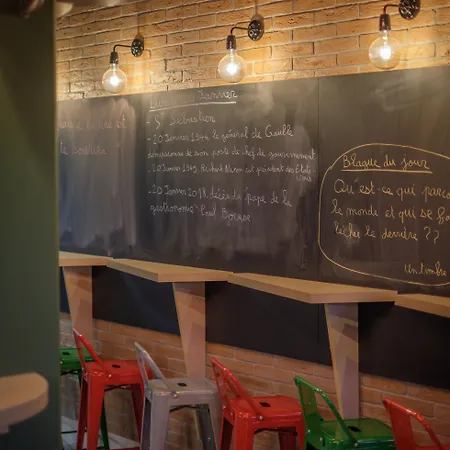 Janvier
- St Sébastien
- 20 Janvier 1946 le général de Gaulle
démissionne de son poste de chef du gouvernement
- 20 Janvier 1969, Richard Nixon est président des États
Unis
- 20 Janvier 2018 décès du "pape de la
gastronomie" Paul Bocuse
et
Blague du jour
Qu'est-ce qui parco
le monde et qui se fa
lécher le derrière ??
un timbre